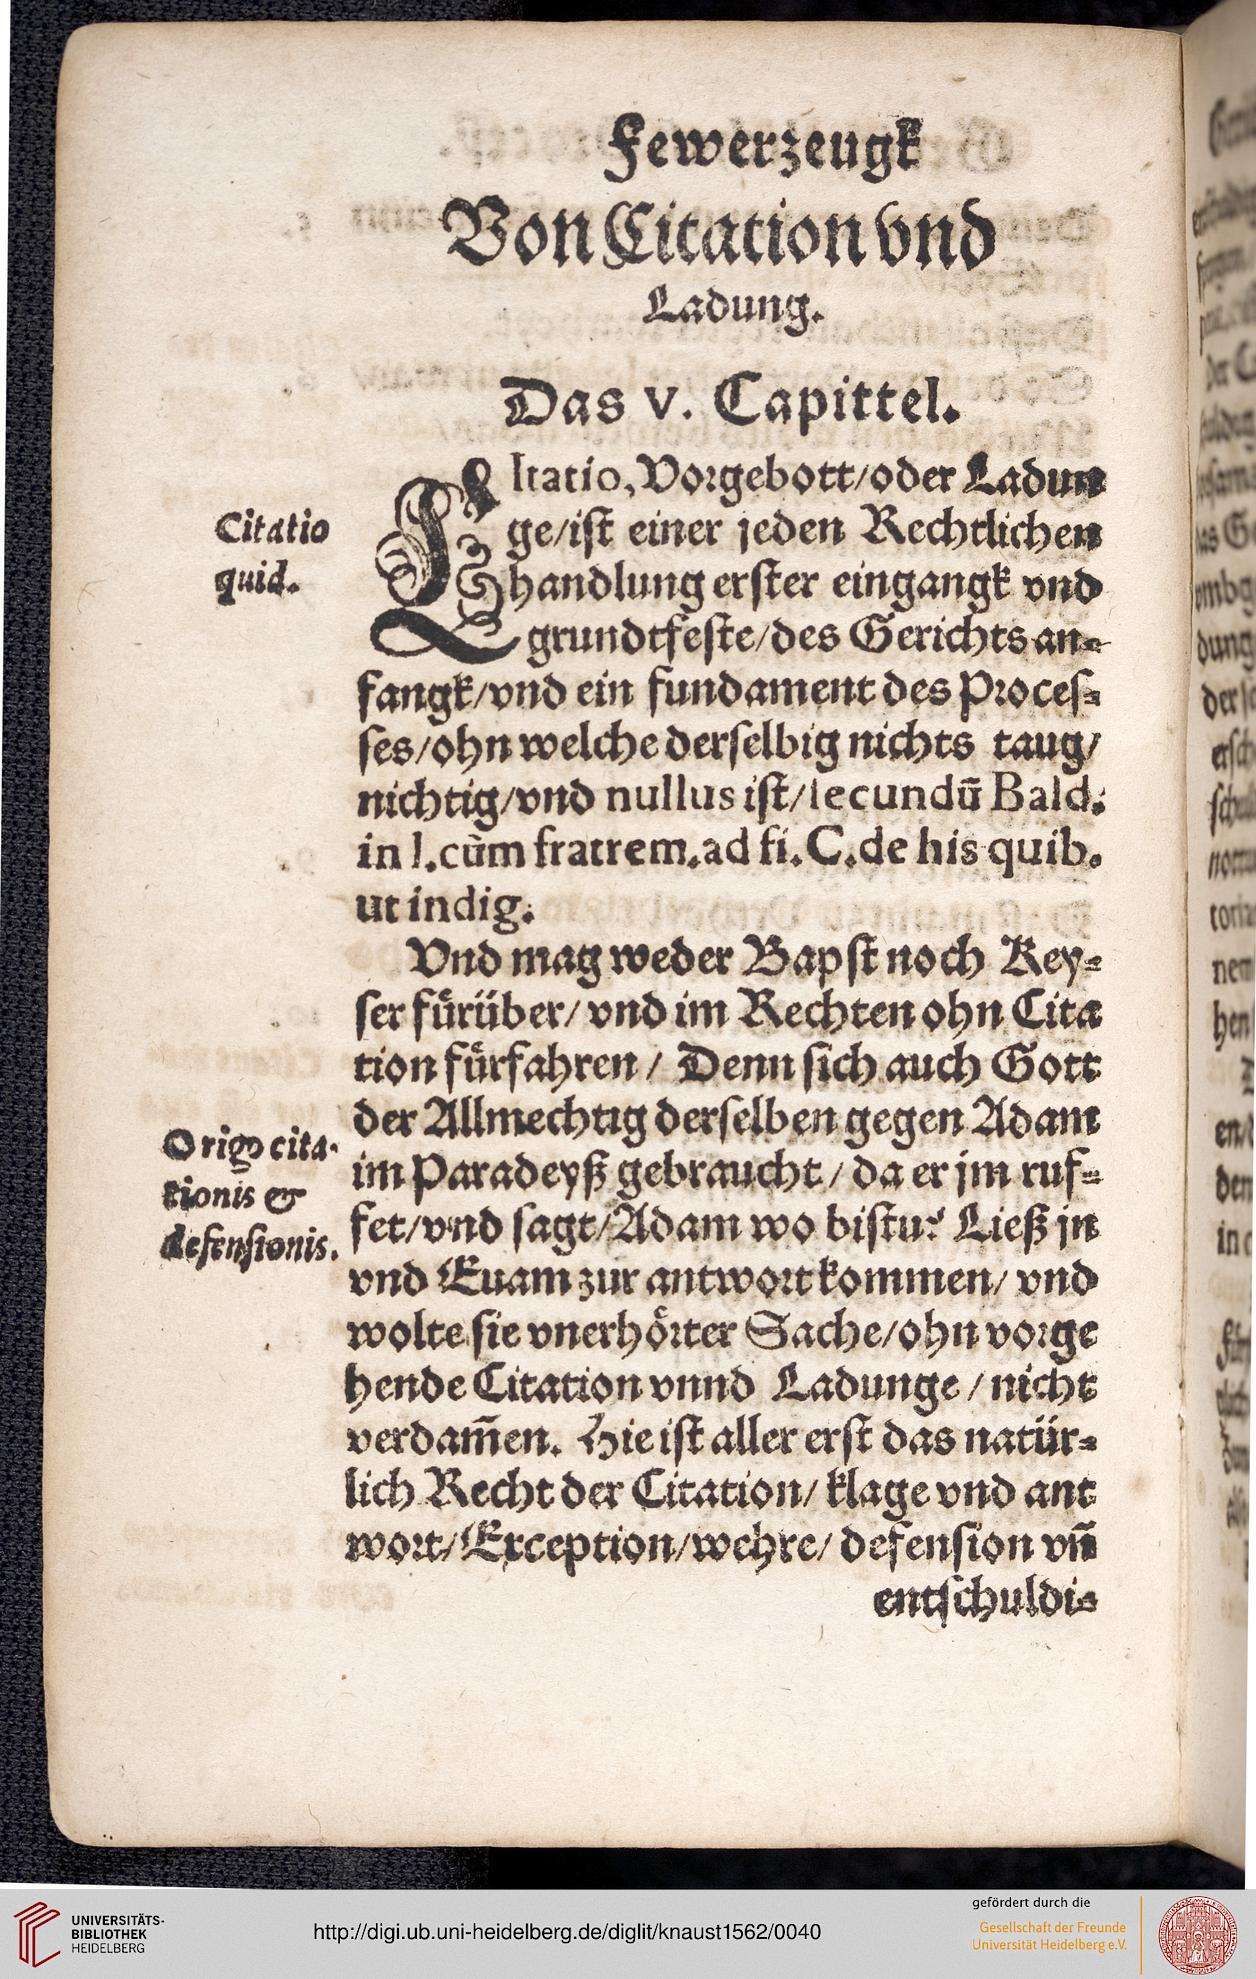 Fewerzeugk
Von Citation vnd
Ladung.
Das v. Capittel.
CItatio, Vorgebott/oder Ladun
ge/ist einer jeden Rechtlichen
handlung erster eingangk vnd
grundtfeste/des Gerichts an-
fangk/vnd ein fundament des Proces-
ses/ohn welche derselbig nichts taug/
nichtig/vnd nullus ist/secundū Bald.
in l. cùm fratrem. ad fi. C. de his quib.
ut indig.
Citatio
quid.
Vnd mag weder Bapst noch Key-
ser fürüber/ vnd im Rechten ohn Cita
tion fürfahren / Denn sich auch Gott
der Allmechtig derselben gegen Adam
im Paradeyß gebraucht / da er jm ruf-
fet/vnd sagt/Adam wo bistu? Ließ jn
vnd Euam zur antwort kommen/ vnd
wolte sie vnerhörter Sache/ohn vorge
hende Citation vnnd Ladunge / nicht
verdam̄en. Hie ist aller erst das natür-
lich Recht der Citation/ klage vnd ant
wort/Exception/wehre/ defension vn̄
entschuldi-
Origo cita-
tionis &
defensionis.
UNIVERSITÄTS-
BIBLIOTHEK
HEIDELBERG
http://digi.ub.uni-heidelberg.de/diglit/knaust1562/0040
gefördert durch die
Gesellschaft der Freunde
Universität Heidelberg e.V.